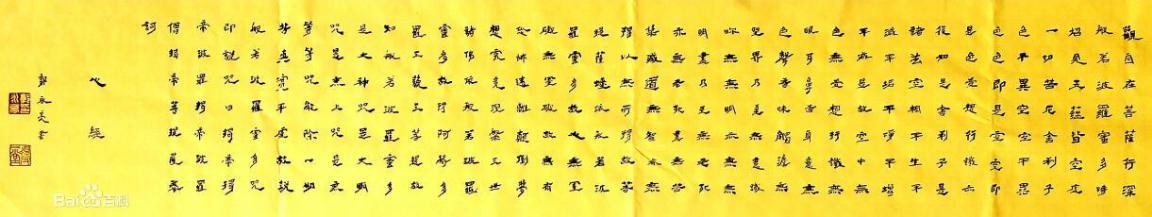 觀自在菩薩行深
般若波羅蜜多時
照見五蘊皆空度
一切苦厄舍利子
色不異空空不異
色色即是空空即
是色受想行識亦
復如是舍利子是
諸法空相不生不
滅不垢不淨不增
不減是故空中無
色無受想行識無
眼耳鼻舌身意無
色聲香味觸法無
眼界乃至無意識
界無無明亦無無
明盡乃至無老死
亦無老死盡無苦
集滅道無智亦無
得以無所得故菩
提薩埵依般若波
羅蜜多故心無罣
礙無罣礙故無有
恐怖遠離顛倒夢
想究竟涅槃三世
諸佛依般若波羅
蜜多故得阿耨多
羅三藐三菩提故
知般若波羅蜜多
是大神咒是大明
咒是無上咒是無
等等咒能除一切
苦真實不虛故說
般若波羅蜜多咒
即說咒曰揭帝揭
帝波羅揭帝波羅
僧揭帝菩提薩婆
訶
心經
Bai百科